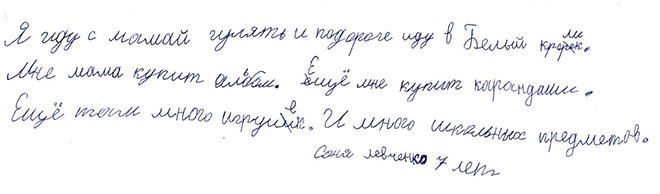 Я иду с мамай гулять и подороге иду в Белый кролик.
Мне мама купит альбом. Ещё мне купит карандаши.
Ещё там много игрушек. И много школьных предметов.
Соня левченко 7 лет